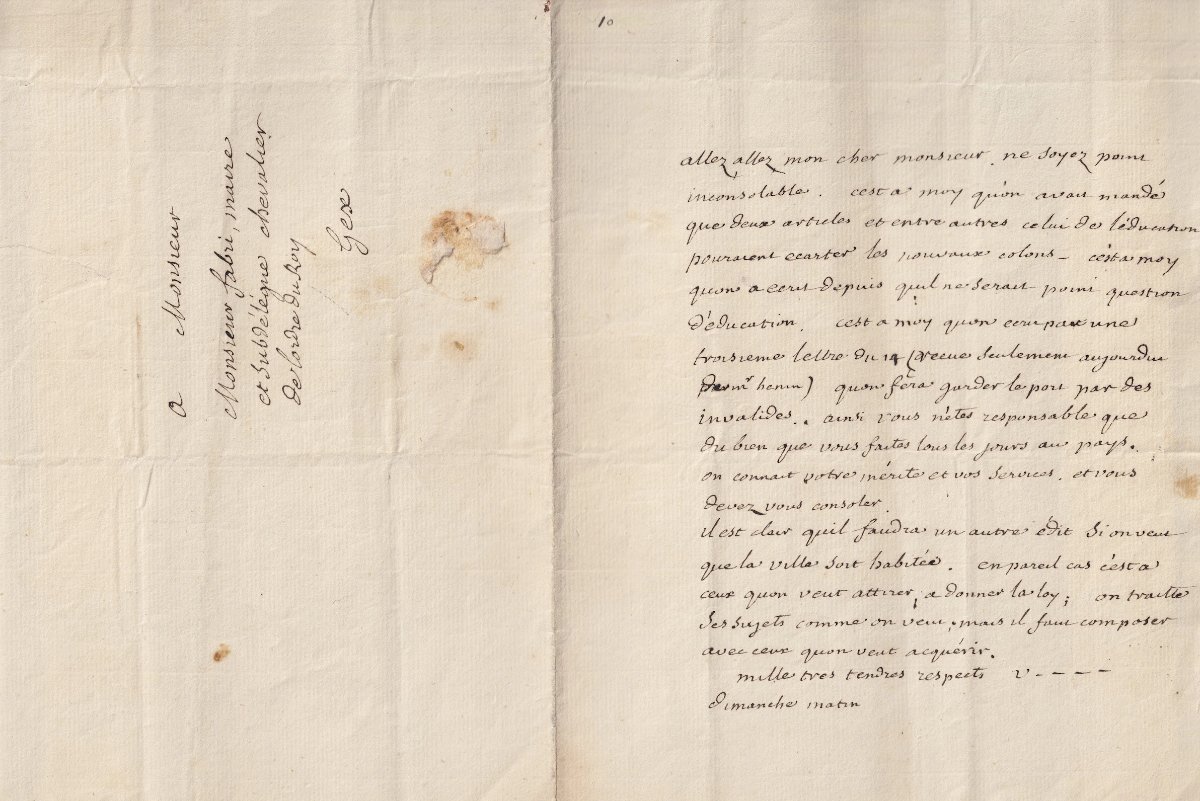 a Monsieur
Monsieur fabri, maire
et subdélégué chevalier
de l'ordre du Roy
Gex
10
allez allez mon cher monsieur ne soyez point
inconsolable. c'est a moy qu'on avait mandé
que deux articles et entre autres celui de l'éducation
pouraient ecarter les nouvaux colons – c'est a moy
quon a ecrit depuis quil ne serait point question
d'éducation. c'est a moy quon ecrit par une
troisieme lettre du 14 (receue seulement aujourdui
par mr henin) quon fera garder le port par des
invalides. ainsi vous n'êtes responsable que
du bien que vous faites tous les jours au pays.
on connait votre mérite et vos services. et vous
devez vous consoler.
il est clair quil faudra un autre édit si on veut
que la ville soit habitée. en pareil cas c'est a
ceux quon veut attirer, a donner la loy; on traitte
ses sujets comme on veut, mais il faut composer
avec ceux quon veut acquérir.
mille tres tendres respects V----
dimanche matin